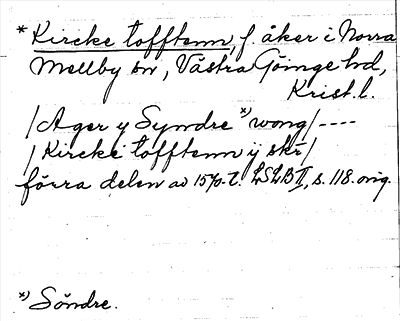 * Kircke tofftenn, f. åker i Norra
Mellby sn, Västra Göinge hd,
Krist. l.
/Ager y Syndre *) wong/ ----
/Kircke tofftenn ÿ skr/
förra delen av 1570-t. LSLB II, s. 118. orig.
*) Söndre.